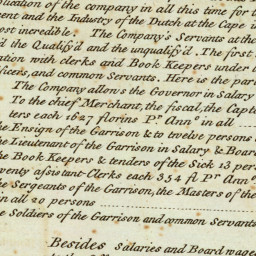 quation of the company in all this time for t
ent and the Industry of the Dutch at the Cape i
ost incredible. The Company's Servants at the
d the Qualify'd and the unqualify'd. The first
ation with clerks and Book Keepers under
fficers, and common Servants. Here is the par
The Company allows the Governor in Salary
To the chief Merchant, the fiscal, the Capt
ters each 1627 florins Pr. Annᵐ in all
the Ensign of the Garrison & to twelve persons
the Lieutenant of the Garrison in Salary & Board
the Book Keepers & tenders of the Sick 13 per
wenty assistant-Clerks each 354 fl Pr Annᵒ
the Sergeants of the Garrison, the Masters of the
in all 20 persons
he Soldiers of the Garrison and common Servants
Besides Salaries and Board wage